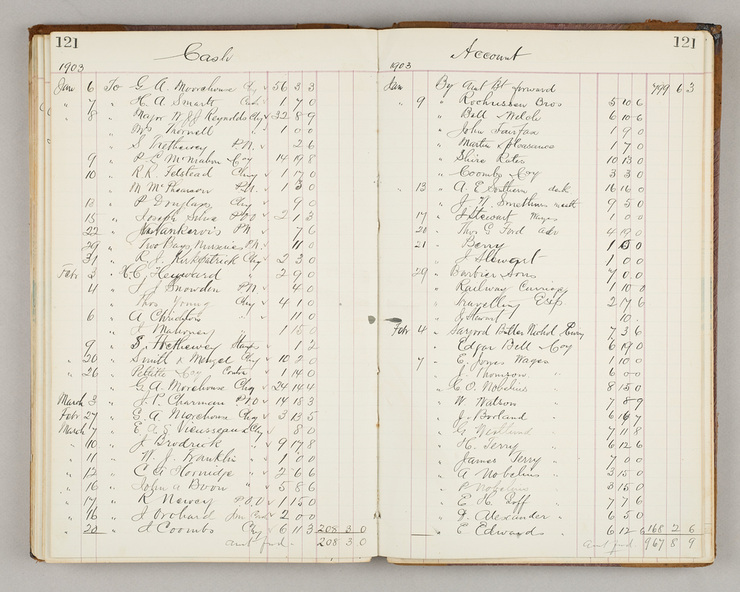 121
Cash
1903
Jan 6 To G A Moorehouse Chq 56 3 3
" 7 " H. A Smart Cash 1 7 0
" 8 " Major Reynolds Chq 32 8 9
" Mrs Thornell 1 0 0
" S Trethewey P.N. 2 6
9 " Coy 14 19 8
10 " R R Felstead Chq 1 17 0
" M McPhearson P.N. 1 3 0
" P Douglass Chq 9 0
15 " Joseph Silva P.O.O 2 1 3
22 " Hankervis PN 7 6
29 " Two Bays Nurseries P.N. 11 0
31 " R. J. Kirkpatrick Chq 2 3 0
Feb 2 H.C. Heyward " 2 9 0
4 " J J Snowden P.N 4 0
" Thos Young Chq 4 1 0
6 " A Chrichton " 11 0
" J Mahoney " 1 15 0
9 " S. Trethewey Stamps 1 2
" 20 " Smith & Chq 10 2 0
" 26 " Coy 1 14 0
" G A. Morehouse Chq 24 14 4
March 3 " J. P Charman P.O.O 14 18 3
Feb 27 " G. A Morehouse Chq 3 13 5
March 7 " E A S Vieusseux Chq 8 0
" 10 " J Brodrick " 9 17 8
" 11 " W. J. Franklin " 1 0 0
" 12 " C Horridge " 2 6 6
" 16 " John A Boon " 5 8 6
" 17 " R Newey P.O.O 1 15 0
" 16 " J Orchard 2 0 0
" 20 " J Coombs Chq 6 11 3 208 3 0
amt fwd. 208 3 0
121
Account
1903
Jan By Amt Bt forward 799 6 3
" 9 " Bros 5 10 6
" Bell Welch 6 10 6
" John Fairfax 1 9 0
" Martin & Pleasance 1 7 0
" Shire Rates 10 13 0
" Coombs Coy 3 3 0
" 13 " A. E Southern 16 16 0
" 9 5 0
17 " J Stewart Wages 1 0 0
20 " Thos G Ford adv 4 19 0
21 " Berry 1 5 0
" J Stewart 1 0 0
29 " Barbier & Sons 7 0 0
" Railway Carriage 1 10 0
" travelling Exps 2 17 6
" J Stewart 10
Feb 4 " 7 3 6
" Edgar Bell Coy 6 19 0
7 " E. Jones Wages 1 10 0
" J. Thomson " 6 0 0
" C O. Nobelius " 8 15 0
" W Watson " 7 8 9
" J. Borland " 6 16 7
" " 7 11 8
" H. Terry " 6 12 6
" James Terry " 7 0 0
" A Nobelius " 3 15 0
" P Nobelius " 3 15 0
" E H. Goff " 7 7 6
" G. Alexander " 6 5 0
" E Edwards " 6 12 6 168 2 6
amt fwd. 967 8 9